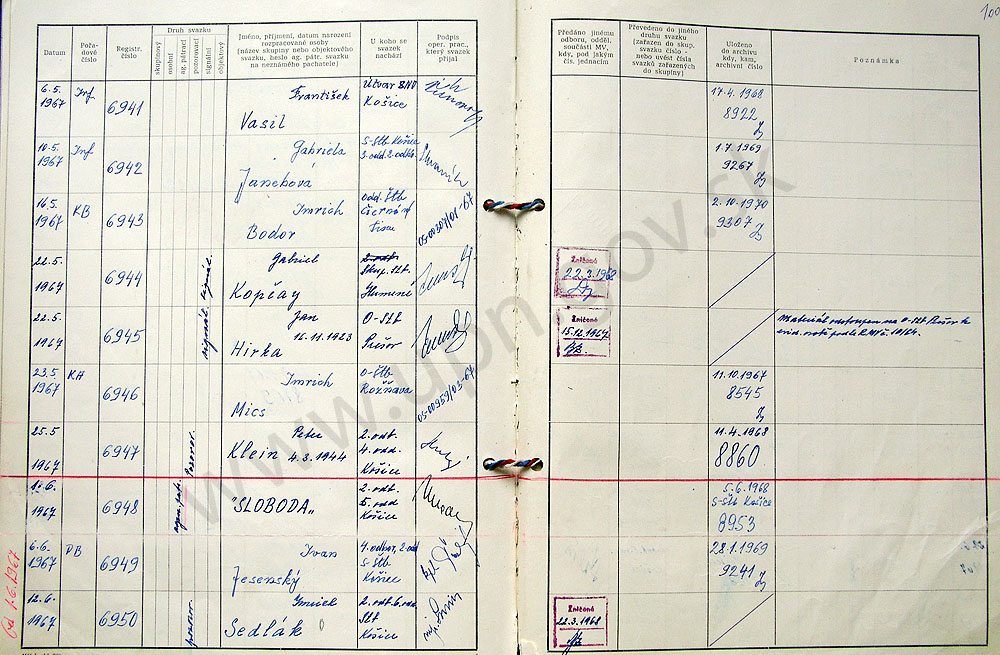 100
Datum
Pořadové číslo
Registr. číslo
Druh svazku
skupinový
osobní
ag. pátrací
pozorovací
signální
objektový
Jméno, příjmení, datum narození
rozpracované osoby
(název skupiny nebo objektového
svazku, heslo ag. pátr. svazku
na neznámého pachatele)
U koho se
svazek
nachází
Podpis
oper. prac.,
který svazek
přijal
Předáno jinému
odboru, odděl.
součásti MV,
kdy, pod jakým
čís. jednacím
Převedeno do jiného
druhu svazku
(zařazen do skup.
svazku číslo -
nebo uvést čísla
svazků zařazených
do skupiny)
Uloženo
do archivu
kdy, kam,
archivní číslo
Poznámka
6.5. 1967 Inf 6941 František Vasil Útvar BND Košice
17.4.1968
8922
10.5. 1967 Inf. 6942 Gabriela Janehová S-Štb Košice 3.odd.2.odb.
1.7.1969
9267
16.5. 1967 KB 6943 Imrich Bodor odd. Štb Čierna n/Tisou
2.10.1970
9307
22.5. 1967 6944 signál. Gabriel Kopčay Skup. Štb Humenné
Zničeno
22.3.1968
22.5. 1967 6945 signál. Jan 16.11.1923 Hirka O-Štb Prešov
Zničeno
15.12.1967
Materiál odstoupen na O-Štb Prešov k
23.5. 1967 KH 6946 Imrich Mics O-Štb Rožňava
11.10.1967
8545
25.5 1967 6947 Pozorov. Peter Klein 4.3.1944 2.odb. 4.odd. Košice
11.4.1968
8860
1.6. 1967 6948 agen.pát. "SLOBODA" 2.odb. 5.odd Košice
5.6.1968
S-Štb Košice
8953
6.6. 1967 PB 6949 Ivan Jesenský 4.odbor, 2.od S-Štb Košice
28.1.1969
9241
12.6. 1967 6950 pozor. Sedlák 2.odb.6.od. Štb Košice
Zničeno
22.3.1968
Od 1.6.1967
www.upn.gov.sk